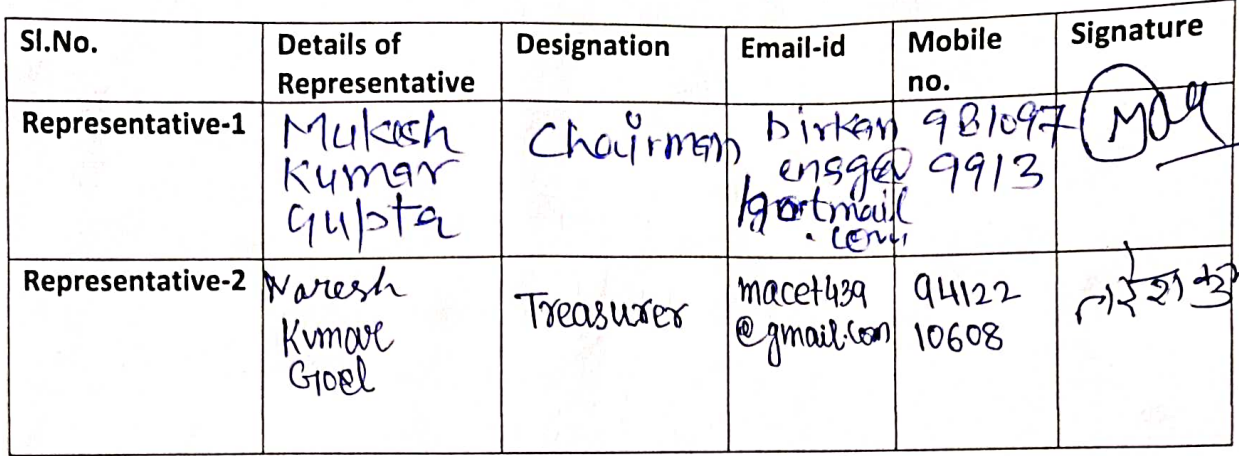 Sl.No. Details of Representative Designation Email-id Mobile no. Signature
Representative-1
Mukesh
Kumar
Gupta
Chairman
981097
9913
Representative-2
Naresh
Kumar
Goel
Treasurer
macet439
@gmail.com
94122
10608